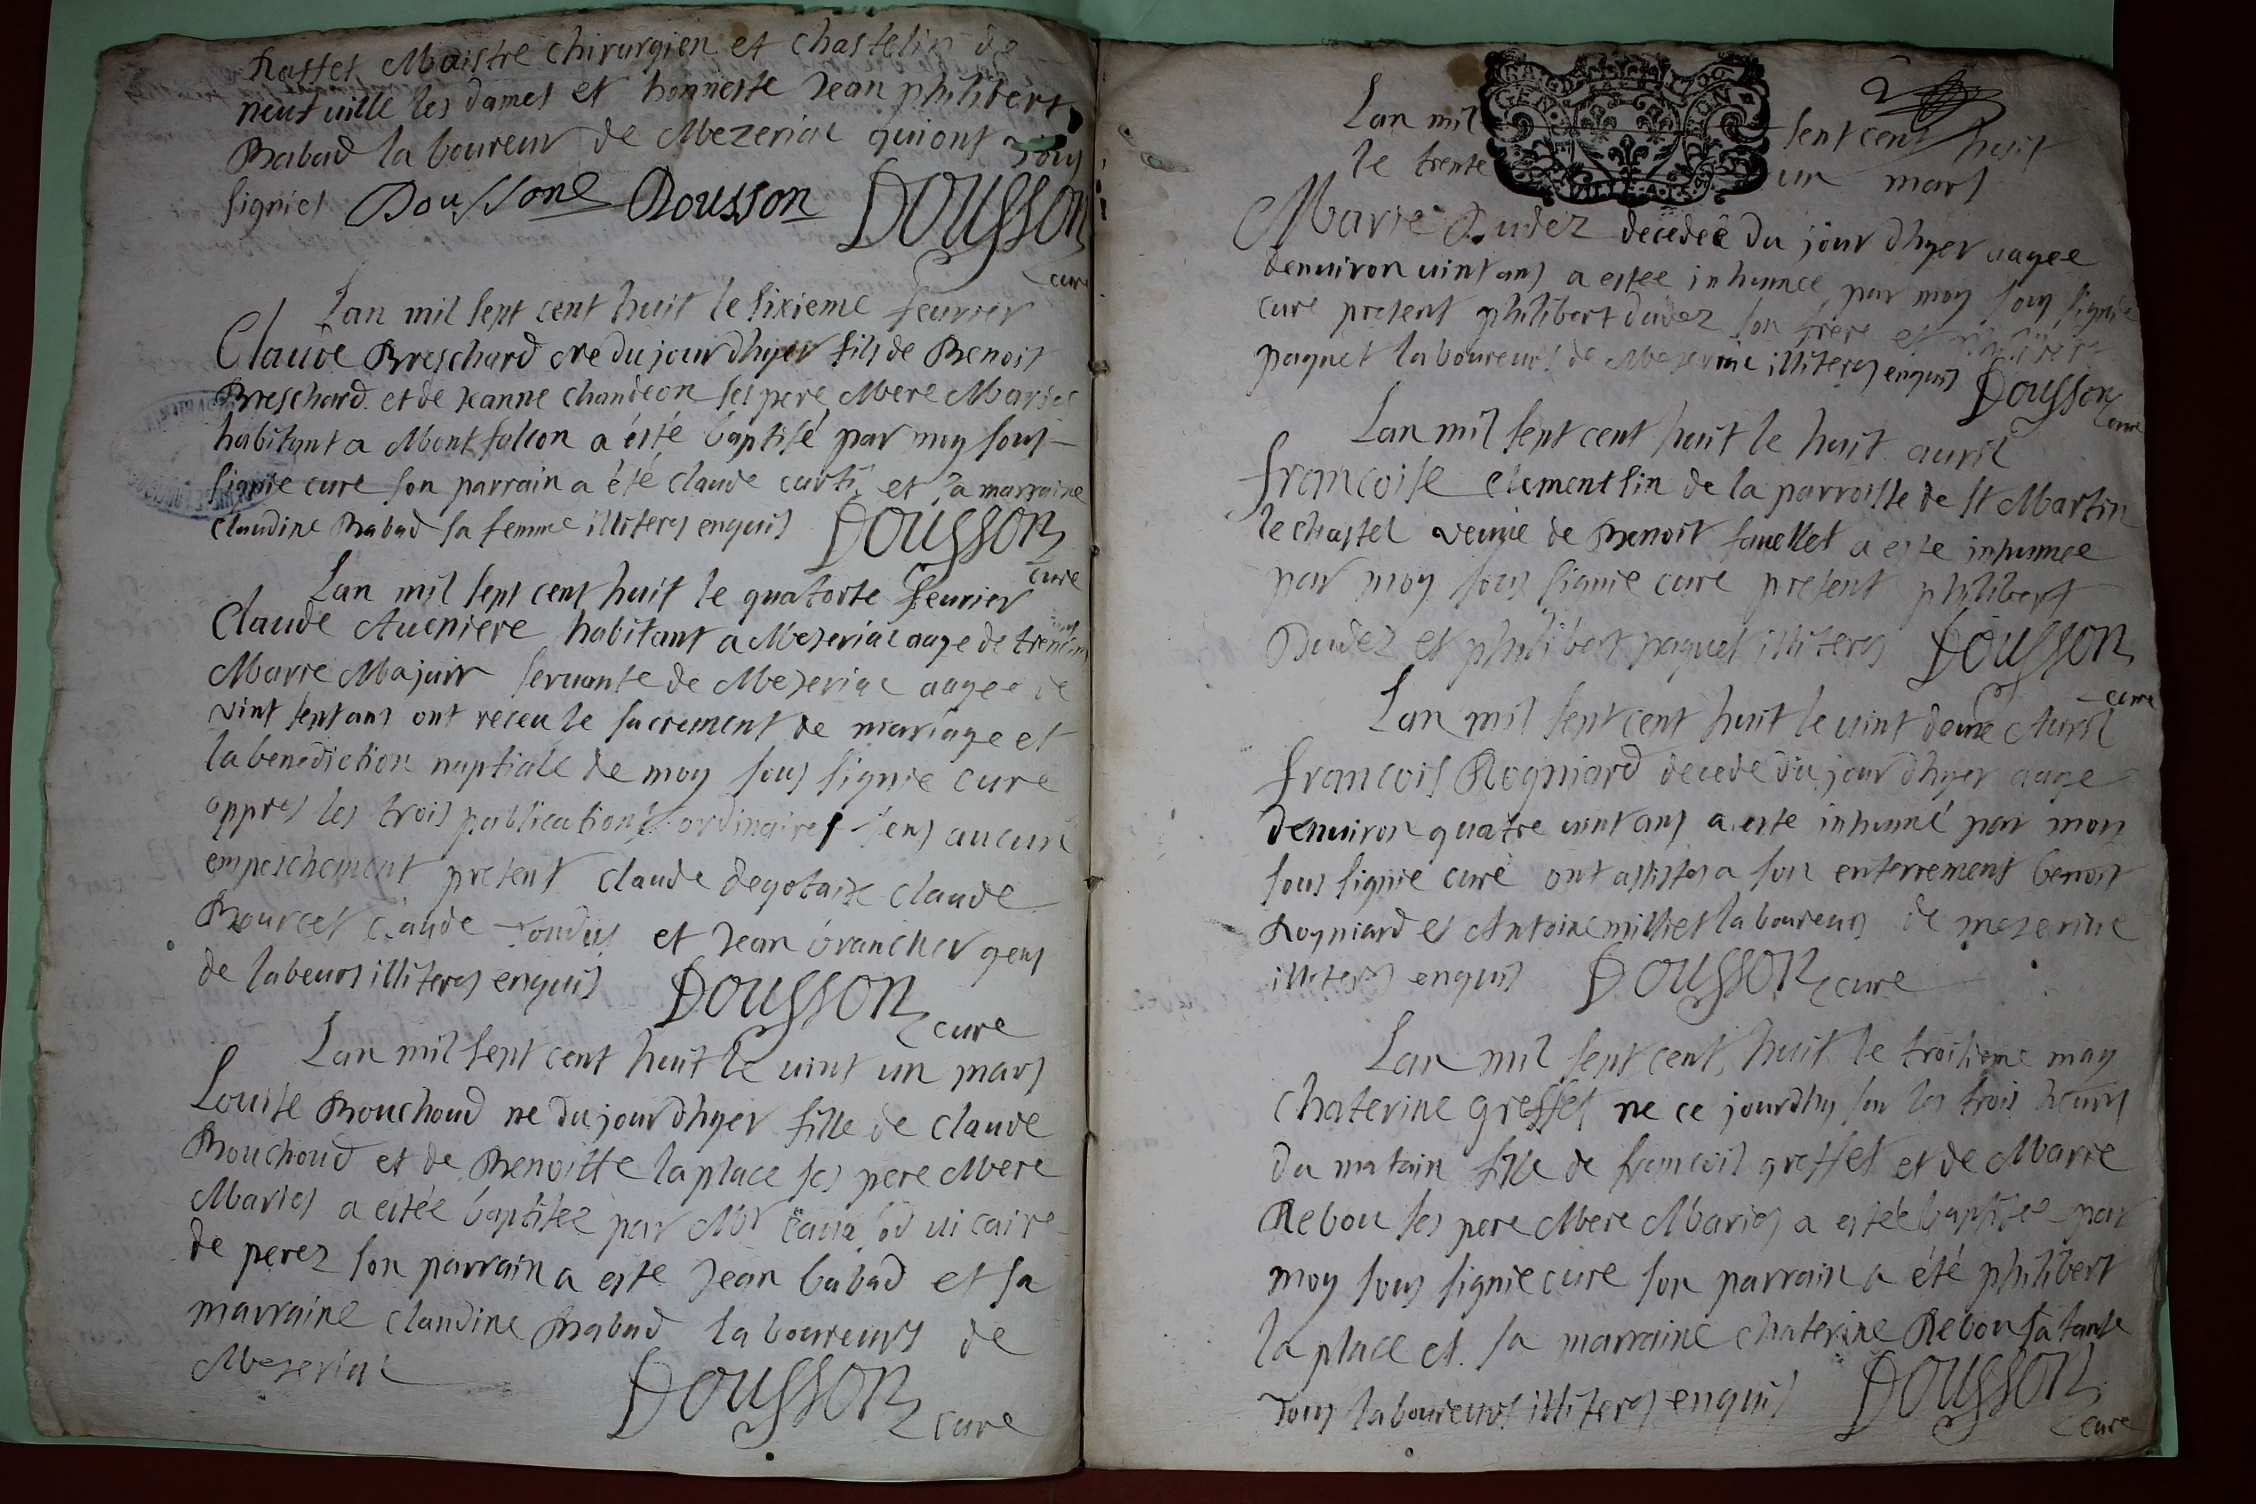 Rasset Maistre chirurgien et chastelin de
neufuille les dames et honneste Jean philibert
Babad la boureur de Mezeriac qui ont tous
signiés Doussone Dousson Dousson
cure
Lan mil sept cent huit le sixieme feurier
Claude Breschard ne du jour dhyer fils de Benoist
Breschard et de Jeanne chandeon ses pere Mere Maries
habitant a Montfalcon a été baptisé par moy sous
signie cure son parrain a été claude curti et sa marraine
claudine Babad sa femme illiteres enquis Dousson
cure
Lan mil sept cent huit le quatorse feurier
Claude Aucniere habitant a Mezeriac aage de trente
Marie Majuir seruante de Mezeriac aagee de
vint sept ans ont receu le sacrement de mariage et
la benediction nuptiale de moy sous signie cure
appres les trois publications ordinaires sens aucun
empeschement present claude degolaix claude
Bourcet claude et Jean brancher gens
de labeurs illiteres enquis Dousson
cure
Lan mil sept cent huit le uint un mars
Louise Bouchoud ne du jour dhyer fille de claude
Bouchoud et de Benoitte la place ses pere Mere
Maries a estée baptisée par Mr uicaire
de perez son parrain a este Jean babad et sa
marraine claudine Babad la boureurs de
Mezeriac Dousson
cure
Lan mil sept cent huit
le trente un mars
Marie Dudez decedeé du jour dhyer aagee
denuiron uint ans a estee inhumee par moy sous signie
cure present philibert dudez son frere et philibert
paquet la boureurs de Mezeriac illiteres enquis Dousson
cure
Lan mil sept cent huit le huit auril
francoise clementsin de la parroisse de st Martin
le chastel veuue de Benoit fauellet a este inhumee
par moy sous signie cure present philibert
Dudez et philibert paquet illiteres Dousson
cure
Lan mil sept cent huit le uint deux Auril
francois Rogniard decede du jour dhyer aage
denuiron quatre uint ans a este inhumé par moy
sous signie curé ont assistes a son enterrement benoit
Rogniard et Antoine milliet la boureurs de mezeriac
illiteres enquis Dousson cure
Lan mil sept cent huit le troisieme may
Chaterine greffet ne ce jourdhy sur les trois heures
du matain fille de francois greffet et de Marie
Rebou ses pere Mere Maries a estée baptisee par
moy sous signie cure son parrain a été philibert
la place et sa marraine chaterine Rebou sa tante
tous laboureurs illiteres enquis Dousson
cure